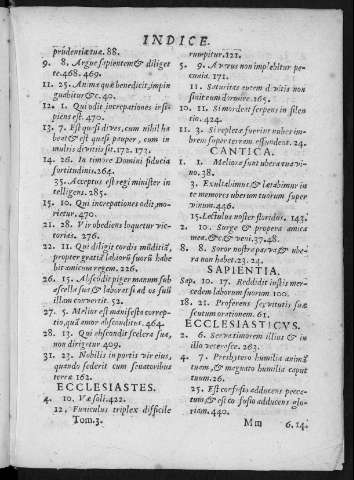 INDICE.
prudentiæ tuæ. 88.
9. 8. Argue sapientem & diliget te. 468. 469.
11. 25. Anima quæ benedicit, impin guabitur & c. 40.
12. 1. Qui odit, increpationes insipiens est. 470.
13. 7. Est quasi dives, cum nihil habeat & est quasi pauper, cum in multis divitiis sit. 172. 173.
14. 26. In timore Domini fiducia fortitudinis. 264.
35. Acceptus est regi minister intelligens. 285.
15. 10. Qui increpationes odit, morietur. 470.
21. 28. Vir obediens loquetur victorias. 276.
22. 11. Qui diligit cordis mūditiā, propter gratiā labiorū suorū habebit amicum regem. 226.
26. 15. Abscōdit piger manum sub ascella sua, & laborat si ad os suū illam converterit. 52.
27. 5. Melior est manifesta correptio, quā amor absconditus. 464.
28. 13. Qui abscondit scelera sua, non dirigetur 409.
31. 23. Nobilis in portis vir eius, quando sederit cum senatoribus terræ 162.
ECCLESIASTES.
4. 10. Væ soli. 422.
12. Funiculus triplex difficile
Tom. 3.
rumpitur. 121.
5. 9. Avarus non implebitur pecunia. 171.
11. Saturitas autem divitis non sinit eum dormire. 165.
10. 11. Si mordeat serpens in silentio. 424.
11. 3. Si repletæ fuerint nubes imbrem super terram effundent. 24.
CANTICA.
1. 1. Meliora sunt ubera tua vino. 38.
3. Exultabimus & lætabimur in te memores uberum tuorum super vinum. 446.
15. Lectulus noster floridus. 143.
2. 10. Surge & propera amica mea, & c & veni. 37. 48.
8. 8. Soror nostra parva & ubera non habet. 23. 24.
SAPIENTIA.
Sap. 10. 17. Reddidit iustis mercedem laborum suorum 100.
18. 21. Proferens servitutis suæ scutum orationem. 61.
ECCLESIASTICVS.
2. 6. Servatimorem illius & in illo veterasce. 263.
4. 7. Presbytero humilia animā tuam, & magnato humilia caput tuum. 26.
25. Est confusio adducens peccatum, & est cōfusio adducens gloriam. 440.
Mm
6. 14.